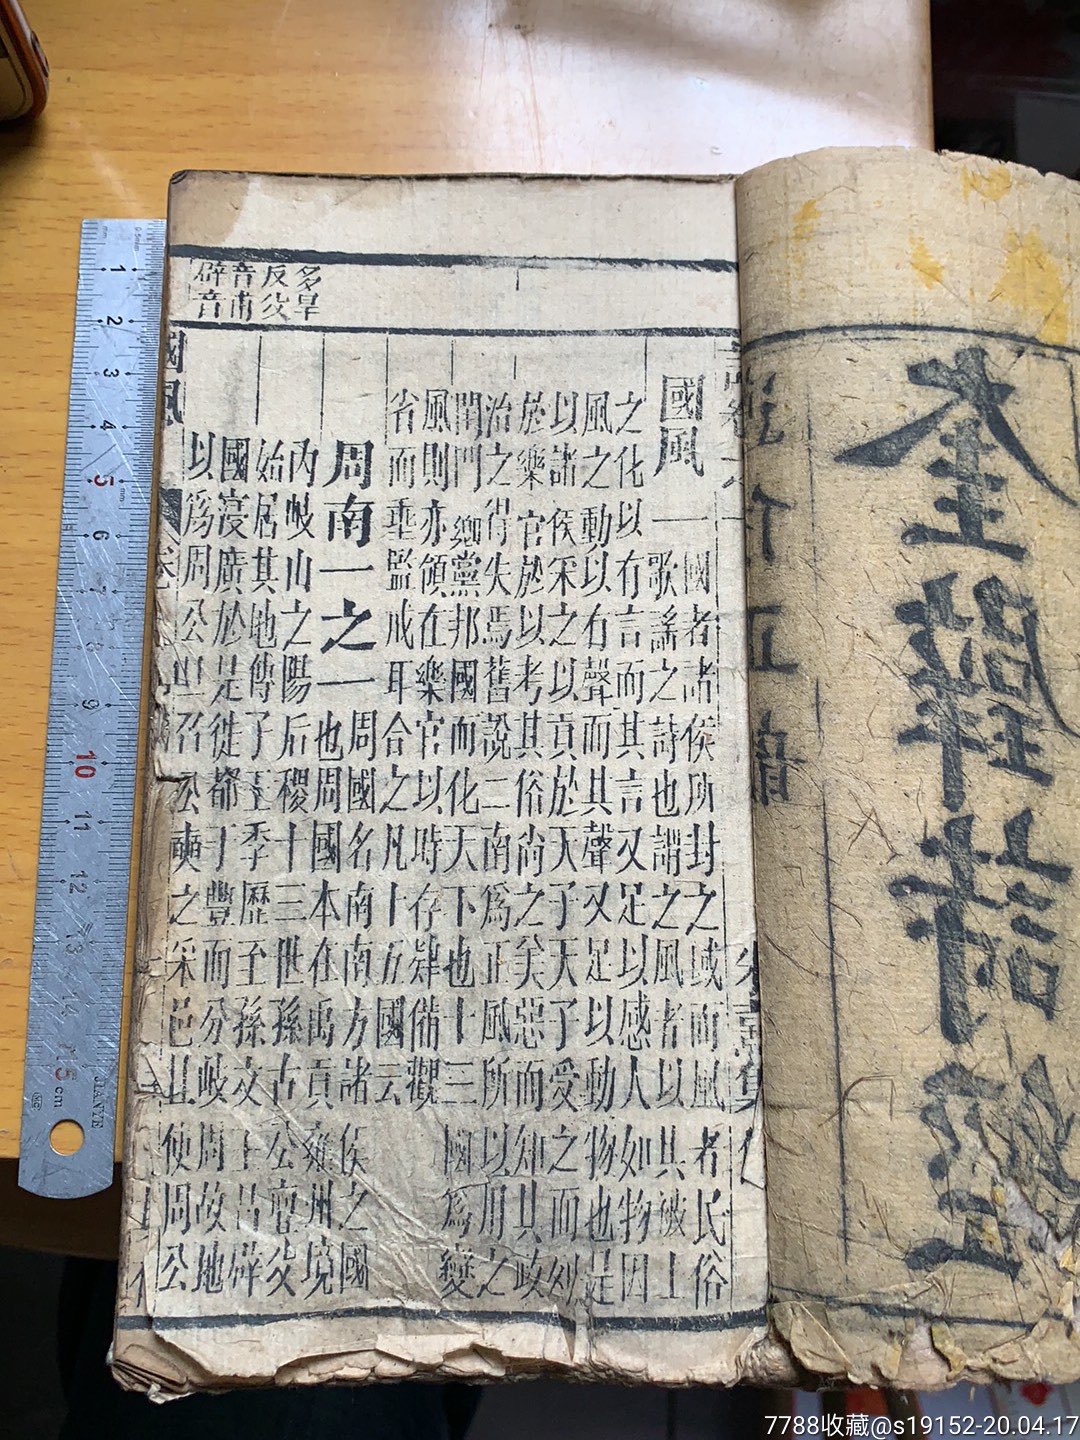 奎壁詩經
正韻
詩卷之一
朱熹集傳
國風一
國者諸侯所封之域而風者民俗
歌謠之詩也謂之風者以其被上
之化以有言而其言又足以感人如物因
風之動以有聲而其聲又足以動物也是
以諸侯采之以貢於天子天子受之而列
於樂官於以考其俗尚之美惡而知其政
治之得失焉舊說二南爲正風所以用之
閨門鄉黨邦國而化天下也十三國爲變
風則亦領在樂官以時存肄備觀
省而垂監戒耳合之凡十五國云
周南一之一
周國名南南方諸侯之國
也周國本在禹貢雍州境
內岐山之陽后稷十三世孫古公亶父
始居其地傳子王季歷至孫文王昌辟
國寖廣於是徙都于豐而分岐周故地
以爲周公旦召公奭之采邑且使周公
多旱
反父
音甫
辟音
國風
卷
7788收藏@s19152-20.04.17